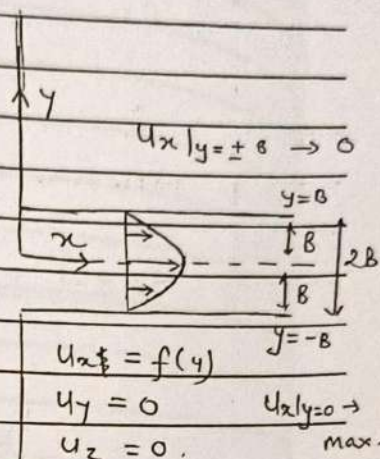 y
Ux|y=± B → 0
y=B
x
B
2B
B
y=-B
Ux = f(y)
Uy = 0
Ux|y=0 →
max.
Uz = 0.